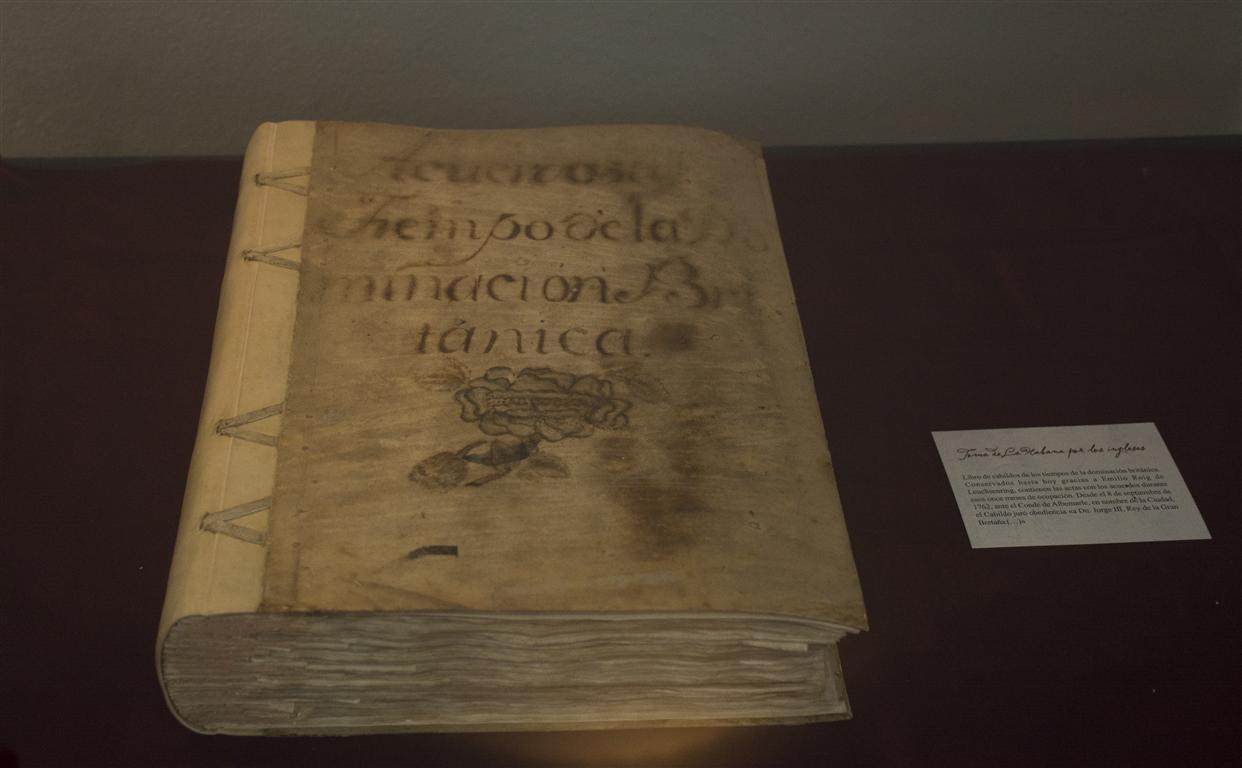 Tiempo de la Do
minación Bri
tánica.
Toma de La Habana por los ingleses
Libro de cabildos de los tiempos de la dominación británica.
Conservados hasta hoy gracias a Emilio Roig de
Leuchsenring, contienen las actas con los acuerdos durante
esos once meses de ocupación. Desde el 8 de septiembre de
1762, ante el Conde de Albemarle, en nombre de la Ciudad,
el Cabildo juró obediencia «a Dn. Jorge III, Rey de la Gran
Bretaña (...)»